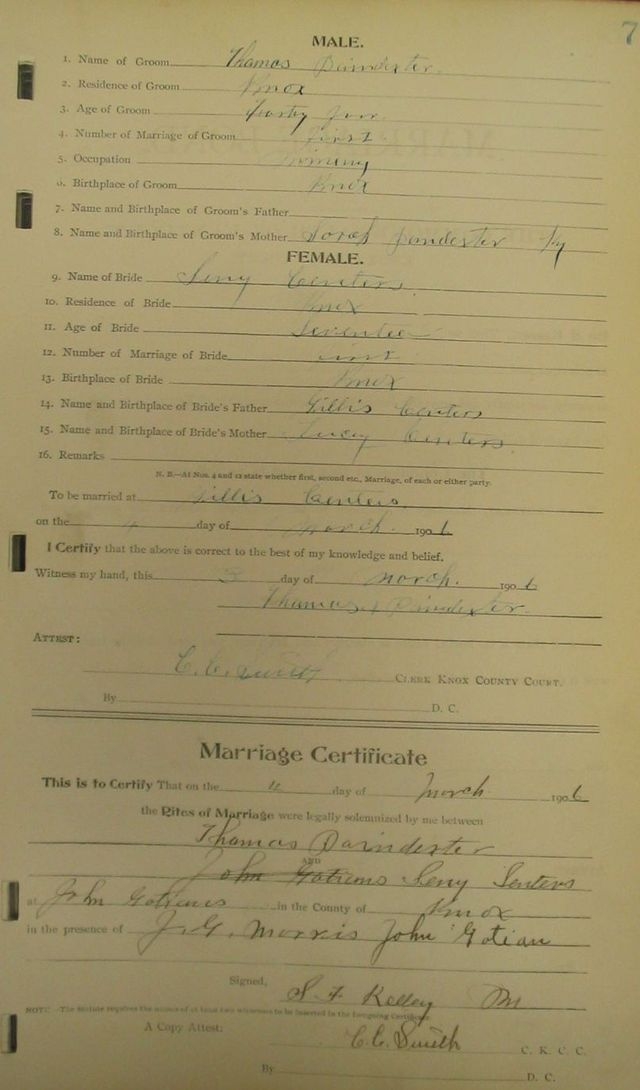 7
MALE.
1. Name of Groom Thamas Daindexter.
2. Residence of Groom Knox
3. Age of Groom Fourty four
4. Number of Marriage of Groom First
5. Occupation
6. Birthplace of Groom Knox
7. Name and Birthplace of Groom's Father
8. Name and Birthplace of Groom's Mother Ky
FEMALE.
9. Name of Bride Leny Centers
10. Residence of Bride Knox
11. Age of Bride
12. Number of Marriage of Bride First
13. Birthplace of Bride Knox
14. Name and Birthplace of Bride's Father Gillis Centers
15. Name and Birthplace of Bride's Mother Lucey Centers.
16. Remarks
N. B.—At Nos. 4 and 12 state whether first, second etc., Marriage, of each or either party.
To be married at Gillis Centers
on the 4 day of March. 1906
I Certify that the above is correct to the best of my knowledge and belief.
Witness my hand, this 3 day of March. 1906
Thamas Daindexter.
ATTEST:
C. C. Smith CLERK KNOX COUNTY COURT.
By D. C.
Marriage Certificate
This is to Certify That on the 4 day of March 1906
the Rites of Marriage were legally solemnized by me between
Thamas Daindexter
AND
John Gotians Leny Senters
at John Gotians in the County of Knox
in the presence of J. G. Morris John Gotian
Signed, S. F. Kelley
NOTE: The Statute requires the names of at least two witnesses to be inserted in the foregoing Certificate.
A Copy Attest: C. C. Smith C. K. C. C.
By D. C.